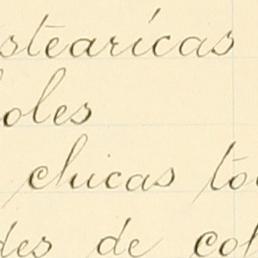 stearícas
oles
chicas to
des de col